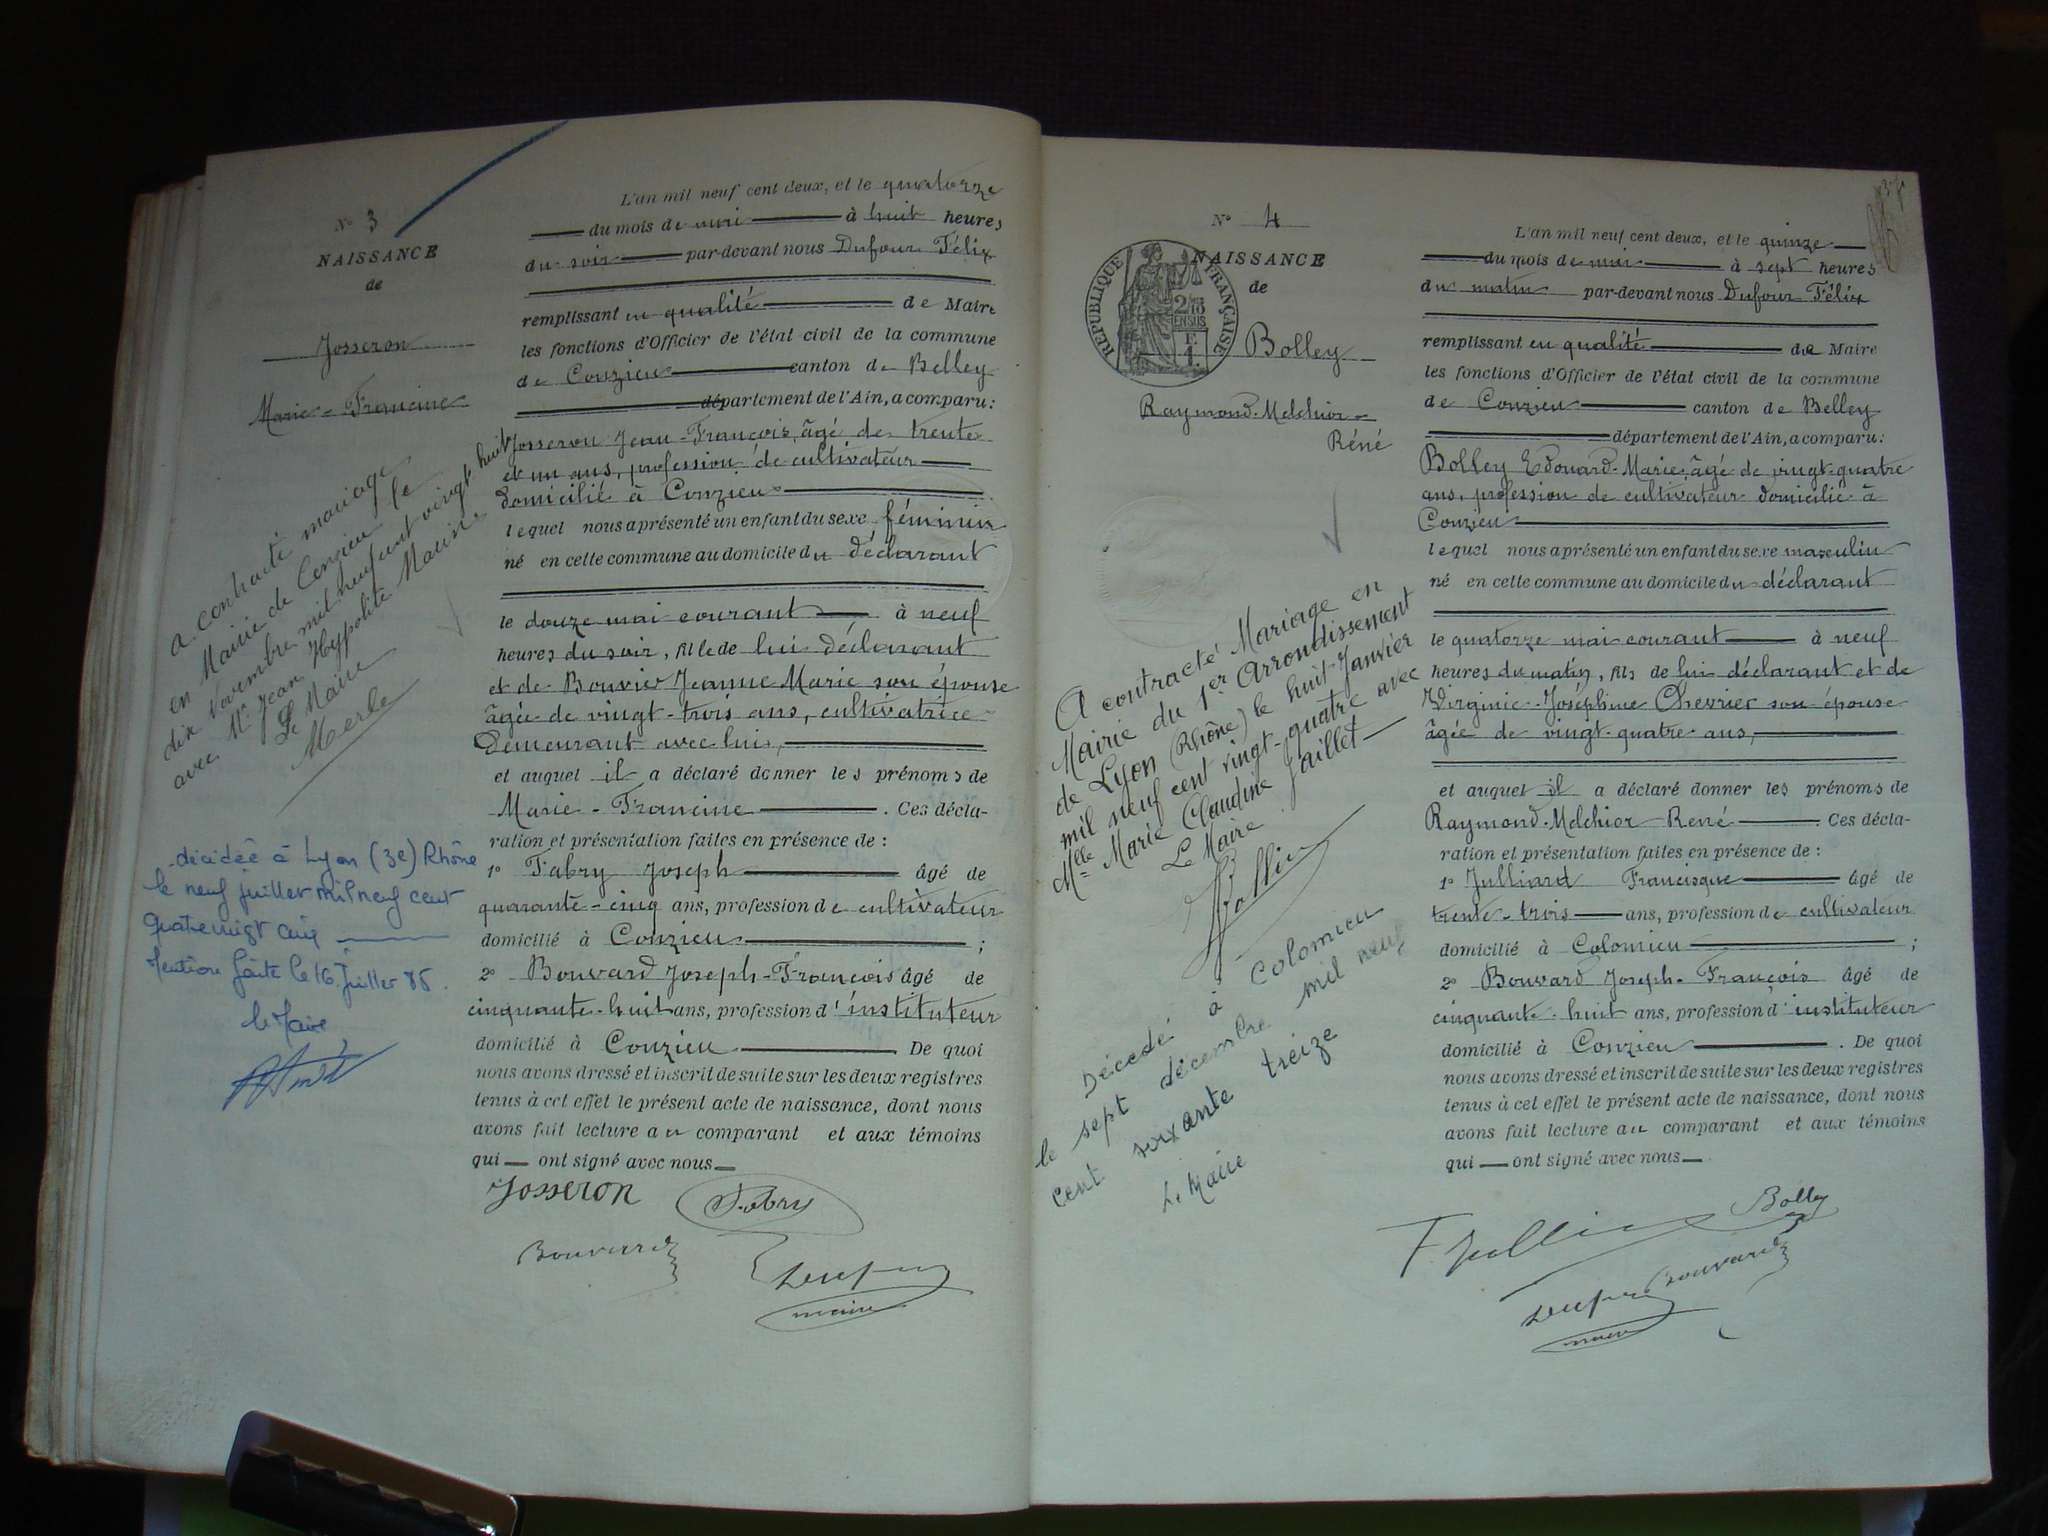 N° 3
NAISSANCE
de
Josseron
Marie-Francine
a contracté mariage
en Mairie de Conzieu le
dix Novembre mil neuf cent vingt huit
avec Mr Jean Hyppolite Maurin
Le Maire
Merle
décédée à Lyon (3e) Rhône
le neuf juillet mil neuf cent
quatre vingt cinq
Mention faite le 16 Juillet 85.
le Maire
L'an mil neuf cent deux, et le quatorze
du mois de mai à huit heures
du soir par-devant nous Dufour Félix
remplissant en qualité de Maire
les fonctions d'Officier de l'état civil de la commune
de Conzieu canton de Belley
département de l'Ain, a comparu:
Josseron Jean-François, âgé de trente
et un ans, profession de cultivateur
domicilié à Conzieu
lequel nous a présenté un enfant du sexe féminin
né en cette commune au domicile du déclarant
le douze mai courant à neuf
heures du soir, fille de lui déclarant
et de Bouvier Jeanne Marie son épouse
âgée de vingt-trois ans, cultivatrice
Demeurant avec lui,
et auquel il a déclaré donner les prénoms de
Marie-Francine . Ces décla-
ration et présentation faites en présence de :
1° Fabry Joseph âgé de
quarante-cinq ans, profession de cultivateur
domicilié à Conzieu ;
2° Bouvard Joseph-François âgé de
cinquante-huit ans, profession d'instituteur
domicilié à Conzieu De quoi
nous avons dressé et inscrit de suite sur les deux registres
tenus à cet effet le présent acte de naissance, dont nous
avons fait lecture au comparant et aux témoins
qui ont signé avec nous
Josseron Fabry
Bouvard Dufour
maire
N° 4
NAISSANCE
de
RÉPUBLIQUE FRANÇAISE
Bolley
Raymond-Melchior-
Réné
A contracté Mariage en
Mairie du 1er Arrondissement
de Lyon (Rhône) le huit Janvier
mil neuf cent vingt-quatre avec
Mlle Marie Claudine Jaillet
Le Maire
Décédé à Colomieu
le sept décembre mil neuf
cent soixante treize
Le Maire
L'an mil neuf cent deux, et le quinze
du mois de mai à sept heures
du matin par-devant nous Dufour Félix
remplissant en qualité de Maire
les fonctions d'Officier de l'état civil de la commune
de Conzieu canton de Belley
département de l'Ain, a comparu:
Bolley Edouard-Marie, âgé de vingt-quatre
ans, profession de cultivateur domicilié à
Conzieu
lequel nous a présenté un enfant du sexe masculin
né en cette commune au domicile du déclarant
le quatorze mai courant à neuf
heures du matin, fils de lui déclarant et de
Virginie-Joséphine Chevrier son épouse
âgée de vingt-quatre ans,
et auquel il a déclaré donner les prénoms de
Raymond-Melchior-René . Ces décla-
ration et présentation faites en présence de :
1° Julliard Francisque âgé de
trente-trois ans, profession de cultivateur
domicilié à Colomieu ;
2° Bouvard Joseph-François âgé de
cinquante-huit ans, profession d'instituteur
domicilié à Conzieu . De quoi
nous avons dressé et inscrit de suite sur les deux registres
tenus à cet effet le présent acte de naissance, dont nous
avons fait lecture au comparant et aux témoins
qui ont signé avec nous
Bolley
Dufour Bouvard
maire